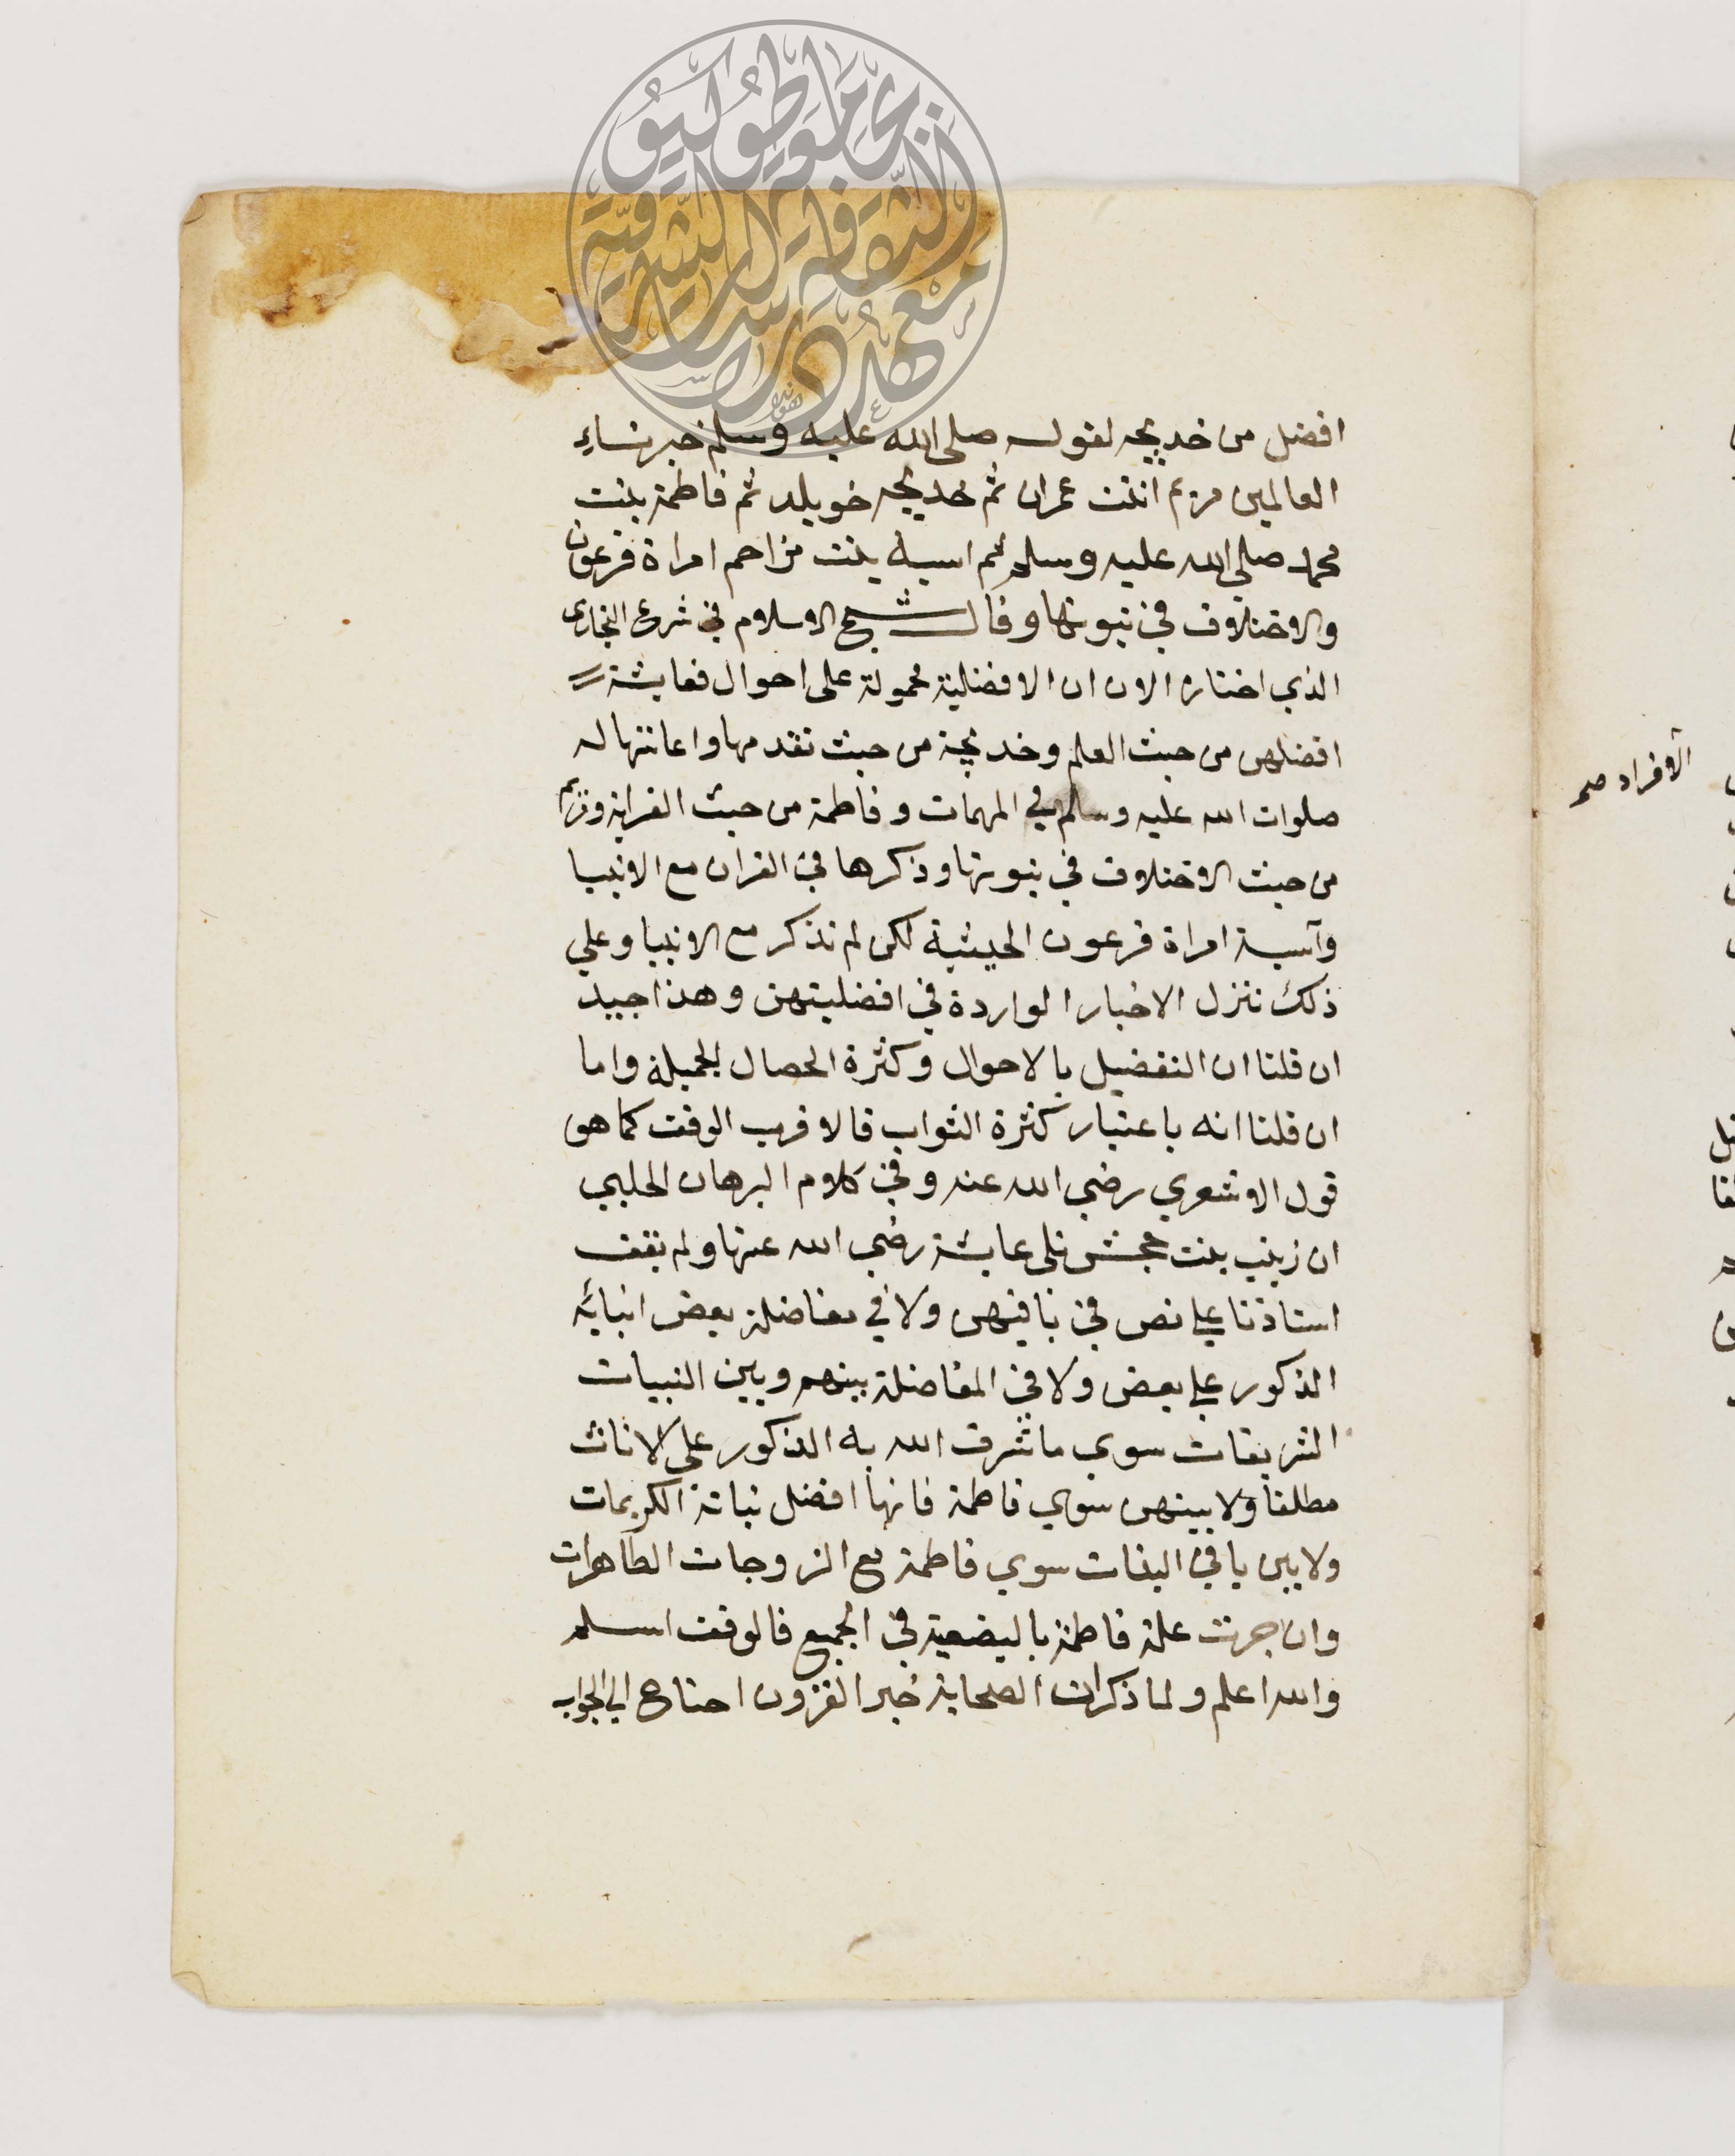 افضل من خديجه لقوله صلى الله عليه وسلم خير نساء
العالمين مريم ابنت عمران ثم خديجه خويلد ثم فاطمة بنت
محمد صلي الله عليه وسلم ثم اسية بنت مزاحم امراة فرعون
والاختلاف في نبوتها وقال شيخ الاسلام في شرح البخارى
الذي اختاره الان ان الافضلية محمولة على احوال فعايشة
افضلهن من حيث العلم وخديجة من حيث تقدمها واعانتها له
صلوات الله عليه وسلم في المهمات وفاطمة من حيث القرابة ومريم
من حيث الاختلاف في نبوتها وذكرها في القران مع الانبيا
وآسية امراة فرعون الحيثية لكن لم تذكر مع الانبيا وعلي
ذلك تنزل الاخبار الواردة في افضليتهن وهذا جيد
ان قلنا ان التفضيل بالاحوال وكثرة الخصال الجميلة واما
ان قلنا انه باعتبار كثرة الثواب فالاقرب الوقف كما هو
قول الاشعري رضي الله عنه وفي كلام البرهان الحلبي
ان زينب بنت جحش تلي عايشة رضي الله عنها ولم يقف
استاذنا علي نص في باقيهن ولا في مفاضلة بعض ابنائه
الذكور علي بعض ولا في المفاضلة بينهم وبين البنيات
الشريفات سوي ما شرف الله به الذكور علي الاناث
مطلقا ولا بينهن سوي فاطمة فانها افضل بناته الكريمات
ولا بين باقي البنات سوي فاطمة مع الزوجات الطاهرات
وان جرت علة فاطمة بالبضعية في الجميع فالوقف اسلم
والله اعلم ولما ذكر ان الصحابة خير القرون احتاج الي الجواب
الافراد صح
جامعة طوكيو
معهد دراسات الثقافة الشرقية